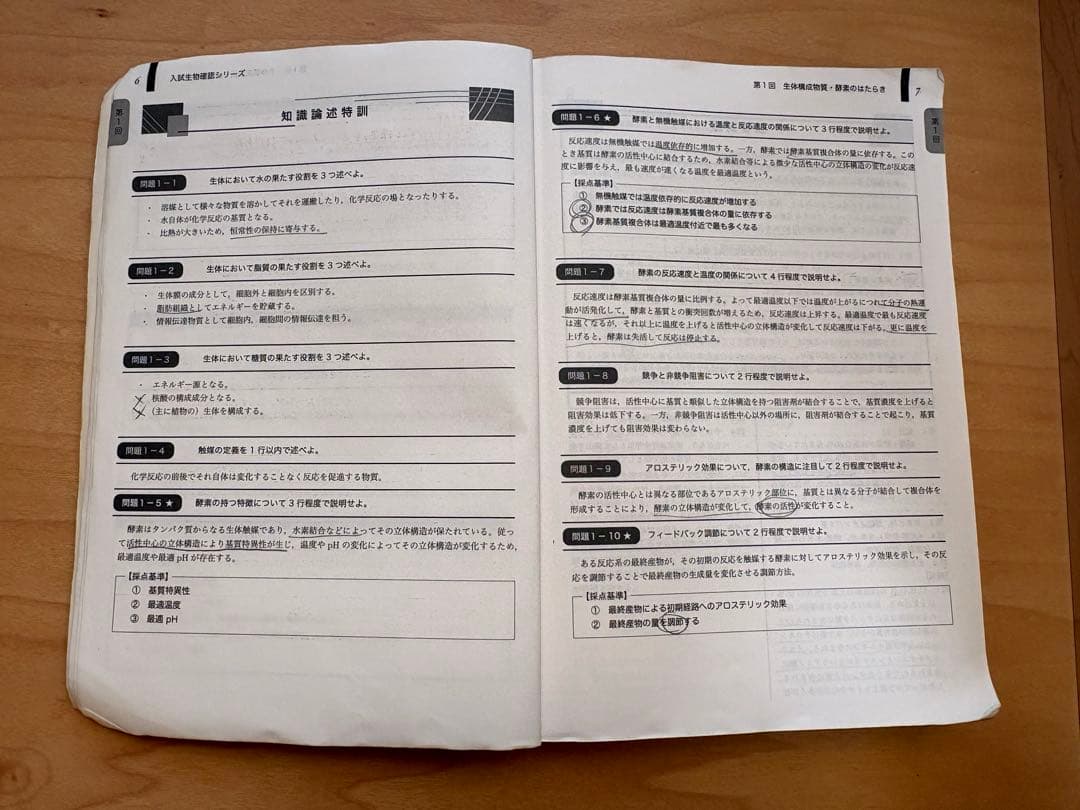 6
入試生物確認シリーズ
第1回
知識論述特訓
問題1－1 生体において水の果たす役割を3つ述べよ。
・ 溶媒として様々な物質を溶かしてそれを運搬したり，化学反応の場となったりする。
・ 水自体が化学反応の基質となる。
・ 比熱が大きいため，恒常性の保持に寄与する。
問題1－2 生体において脂質の果たす役割を3つ述べよ。
・ 生体膜の成分として，細胞外と細胞内を区別する。
・ 脂肪組織としてエネルギーを貯蔵する。
・ 情報伝達物質として細胞内，細胞間の情報伝達を担う。
問題1－3 生体において糖質の果たす役割を3つ述べよ。
・ エネルギー源となる。
・ 核酸の構成成分となる。
・ （主に植物の）生体を構成する。
問題1－4 触媒の定義を1行以内で述べよ。
化学反応の前後でそれ自体は変化することなく反応を促進する物質。
問題1－5★ 酵素の持つ特徴について3行程度で説明せよ。
酵素はタンパク質からなる生体触媒であり，水素結合などによってその立体構造が保たれている。従っ
て活性中心の立体構造により基質特異性が生じ，温度やpHの変化によってその立体構造が変化するため，
最適温度や最適pHが存在する。
【採点基準】
① 基質特異性
② 最適温度
③ 最適pH
第1回 生体構成物質・酵素のはたらき
7
第1回
問題1－6★ 酵素と無機触媒における温度と反応速度の関係について3行程度で説明せよ。
反応速度は無機触媒では温度依存的に増加する。一方，酵素では酵素基質複合体の量に依存する。この
とき基質は酵素の活性中心に結合するため，水素結合等による微少な活性中心の立体構造の変化が反応速
度に影響を与え，最も速度が速くなる温度を最適温度という。
【採点基準】
① 無機触媒では温度依存的に反応速度が増加する
② 酵素では反応速度は酵素基質複合体の量に依存する
③ 酵素基質複合体は最適温度付近で最も多くなる
問題1－7 酵素の反応速度と温度の関係について4行程度で説明せよ。
反応速度は酵素基質複合体の量に比例する。よって最適温度以下では温度が上がるにつれて分子の熱運
動が活発化して，酵素と基質との衝突回数が増えるため，反応速度は上昇する。最適温度で最も反応速度
は速くなるが，それ以上に温度を上げると活性中心の立体構造が変化して反応速度は下がる。更に温度を
上げると，酵素は失活して反応は停止する。
問題1－8 競争と非競争阻害について2行程度で説明せよ。
競争阻害は，活性中心に基質と類似した立体構造を持つ阻害剤が結合することで，基質濃度を上げると
阻害効果は低下する。一方，非競争阻害は活性中心以外の場所に，阻害剤が結合することで起こり，基質
濃度を上げても阻害効果は変わらない。
問題1－9 アロステリック効果について，酵素の構造に注目して2行程度で説明せよ。
酵素の活性中心とは異なる部位であるアロステリック部位に，基質とは異なる分子が結合して複合体を
形成することにより，酵素の立体構造が変化して，酵素の活性が変化すること。
問題1－10★ フィードバック調節について2行程度で説明せよ。
ある反応系の最終産物が，その初期の反応を触媒する酵素に対してアロステリック効果を示し，その反
応を調節することで最終産物の生成量を変化させる調節方法。
【採点基準】
① 最終産物による初期経路へのアロステリック効果
② 最終産物の量を調節する